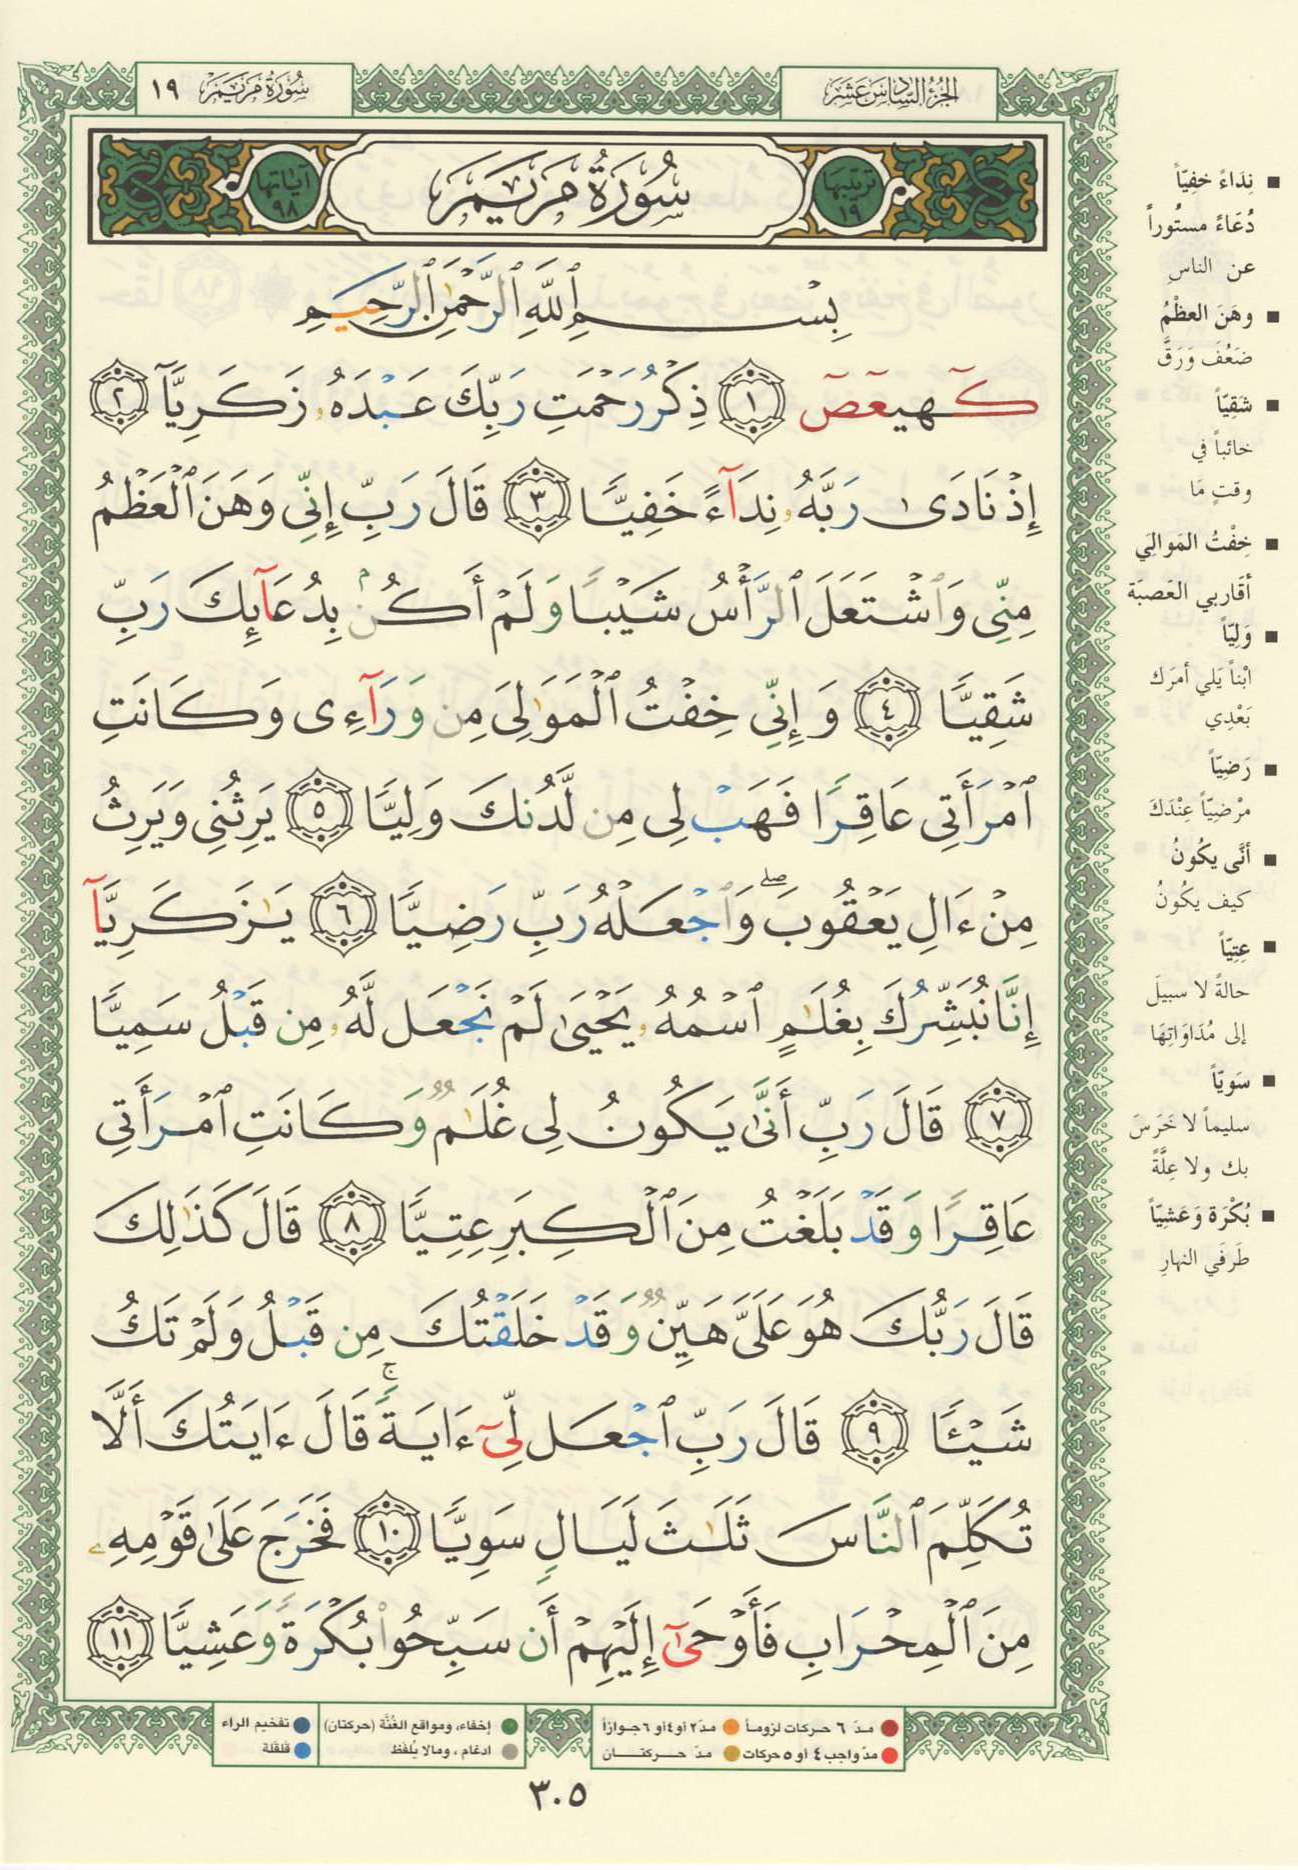 الجزء السادس عشر
سورة مريم ١٩
ترتيبها ١٩
سُورَةُ مَرْيَمَ
آياتها ٩٨
بِسْمِ ٱللَّهِ ٱلرَّحْمَٰنِ ٱلرَّحِيمِ
كٓهيعٓصٓ ١ ذِكْرُ رَحْمَتِ رَبِّكَ عَبْدَهُۥ زَكَرِيَّآ ٢
إِذْ نَادَىٰ رَبَّهُۥ نِدَآءً خَفِيًّا ٣ قَالَ رَبِّ إِنِّى وَهَنَ ٱلْعَظْمُ
مِنِّى وَٱشْتَعَلَ ٱلرَّأْسُ شَيْبًا وَلَمْ أَكُنۢ بِدُعَآئِكَ رَبِّ
شَقِيًّا ٤ وَإِنِّى خِفْتُ ٱلْمَوَٰلِىَ مِن وَرَآءِى وَكَانَتِ
ٱمْرَأَتِى عَاقِرًا فَهَبْ لِى مِن لَّدُنكَ وَلِيًّا ٥ يَرِثُنِى وَيَرِثُ
مِنْ ءَالِ يَعْقُوبَ ۖ وَٱجْعَلْهُ رَبِّ رَضِيًّا ٦ يَٰزَكَرِيَّآ
إِنَّا نُبَشِّرُكَ بِغُلَٰمٍ ٱسْمُهُۥ يَحْيَىٰ لَمْ نَجْعَل لَّهُۥ مِن قَبْلُ سَمِيًّا
٧ قَالَ رَبِّ أَنَّىٰ يَكُونُ لِى غُلَٰمٌ وَكَانَتِ ٱمْرَأَتِى
عَاقِرًا وَقَدْ بَلَغْتُ مِنَ ٱلْكِبَرِ عِتِيًّا ٨ قَالَ كَذَٰلِكَ
قَالَ رَبُّكَ هُوَ عَلَىَّ هَيِّنٌ وَقَدْ خَلَقْتُكَ مِن قَبْلُ وَلَمْ تَكُ
شَيْـًٔا ٩ قَالَ رَبِّ ٱجْعَل لِّىٓ ءَايَةً ۚ قَالَ ءَايَتُكَ أَلَّا
تُكَلِّمَ ٱلنَّاسَ ثَلَٰثَ لَيَالٍ سَوِيًّا ١٠ فَخَرَجَ عَلَىٰ قَوْمِهِۦ
مِنَ ٱلْمِحْرَابِ فَأَوْحَىٰٓ إِلَيْهِمْ أَن سَبِّحُوا۟ بُكْرَةً وَعَشِيًّا ١١
■ نِدَاءً خفِيّاً
دُعَاءً مستُوراً
عن الناسِ
■ وهَنَ العظْمُ
ضَعُفَ وَرَقَّ
■ شَقِيّاً
خائباً في
وقتٍ مَا
■ خِفْتُ المَوالِي
أقَاربي العَصبَة
■ وَلِيّاً
ابْناً يَلي أمرَك
بَعْدِي
■ رَضِيّاً
مرْضِيّاً عِنْدَكَ
■ أنَّى يكُونُ
كيف يكُونُ
■ عِتِيّاً
حالةً لا سبيلَ
إلى مُدَاوَاتِهَا
■ سَويّاً
سليماً لا خَرَسَ
بك ولا عِلَّةً
■ بُكْرَة وَعَشِيّاً
طَرفَي النهارِ
مدّ ٦ حركات لزوماً
مدّ ٢ أو ٤ أو ٦ جوازاً
إخفاء، ومواقع الغُنَّة (حركتان)
تفخيم الراء
مدّ واجب ٤ أو ٥ حركات
مدّ حركتان
ادغام، ومالا يُلفظ
قلقلة
٣٠٥